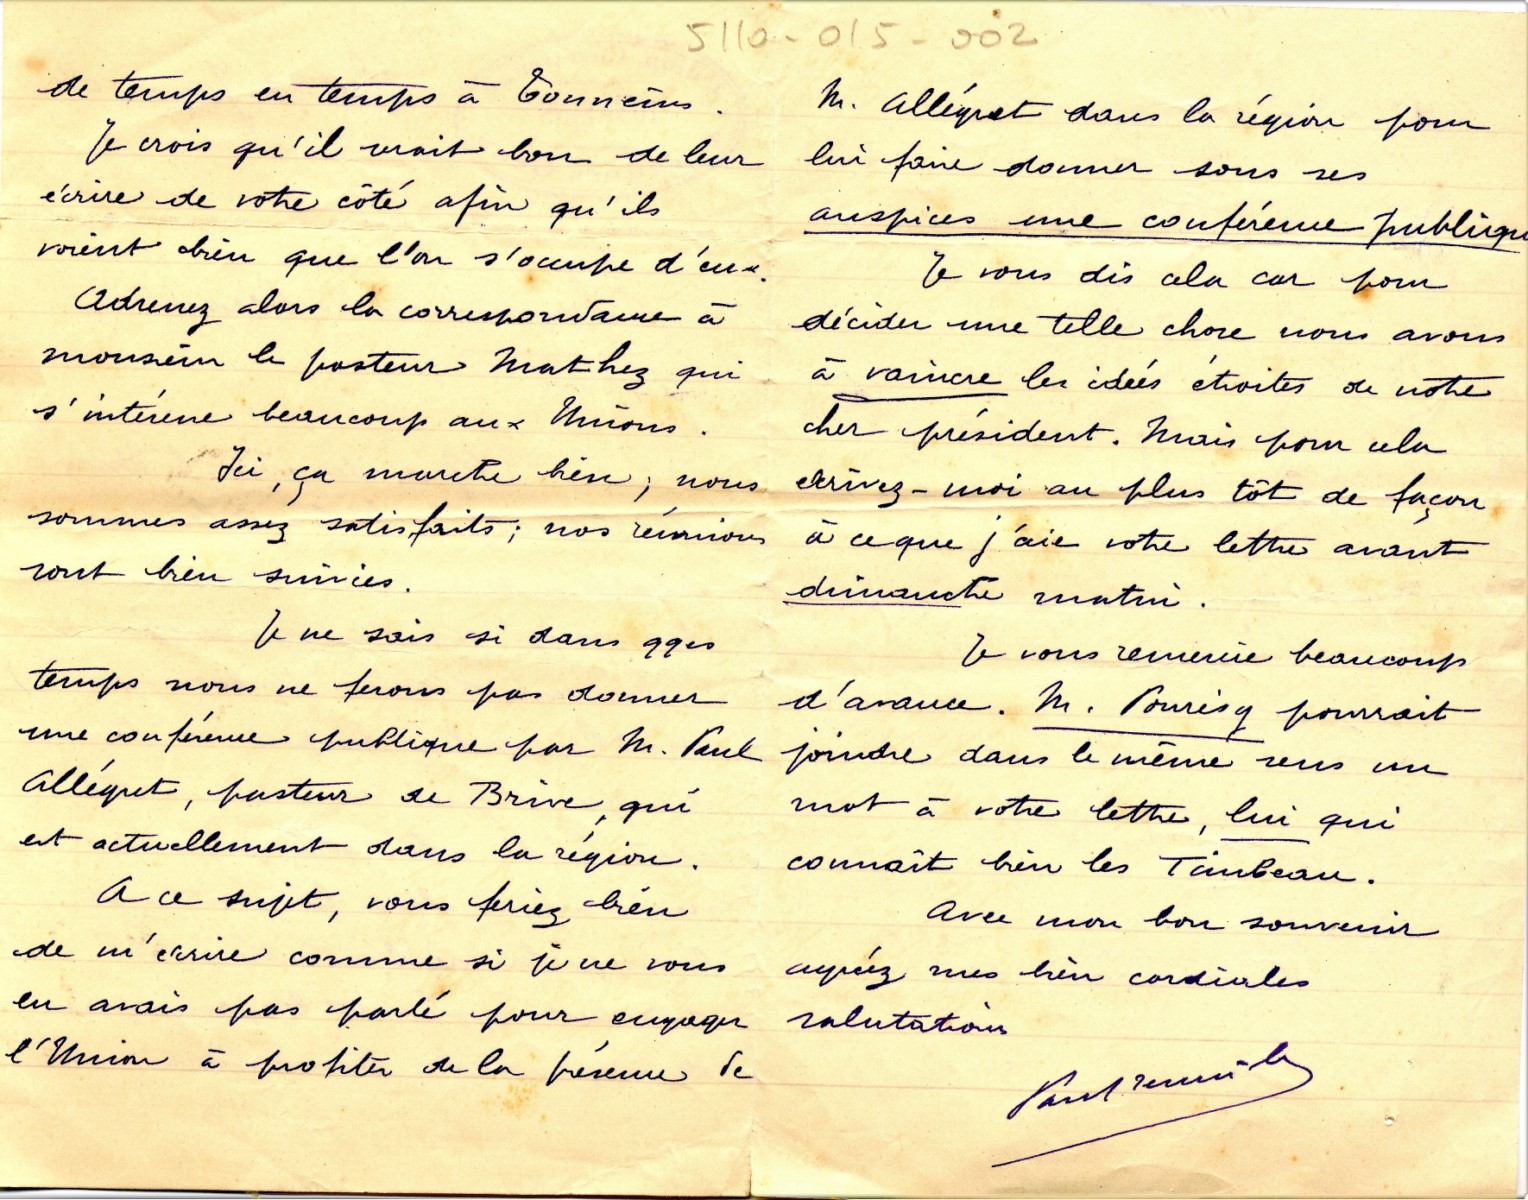 5110-015-002
de temps en temps à Tonneins.
Je crois qu'il serait bon de leur
écrire de votre côté afin qu'ils
voient bien que l'on s'occupe d'eux.
Adressez alors la correspondance à
monsieur le pasteur Mathez qui
s'intéresse beaucoup aux Unions.
Ici, ça marche bien; nous
sommes assez satisfaits; nos réunions
sont bien suivies.
Je ne sais si dans qques
temps nous ne ferons pas donner
une conférence publique par M. Paul
Allégret, pasteur de Brive, qui
est actuellement dans la région.
A ce sujet, vous feriez bien
de m'écrire comme si je ne vous
en avais pas parlé pour engager
l'Union à profiter de la présence de
M. Allégret dans la région pour
lui faire donner sous ses
auspices une conférence publique
Je vous dis cela car pour
décider une telle chose nous avons
à vaincre les idées étroites de notre
cher président. Mais pour cela
écrivez-moi au plus tôt de façon
à ce que j'aie votre lettre avant
dimanche matin.
Je vous remercie beaucoup
d'avance. M. pourrait
joindre dans le même sens un
mot à votre lettre, lui qui
connaît bien les
Avec mon bon souvenir
agréez mes bien cordiales
salutations
Paul